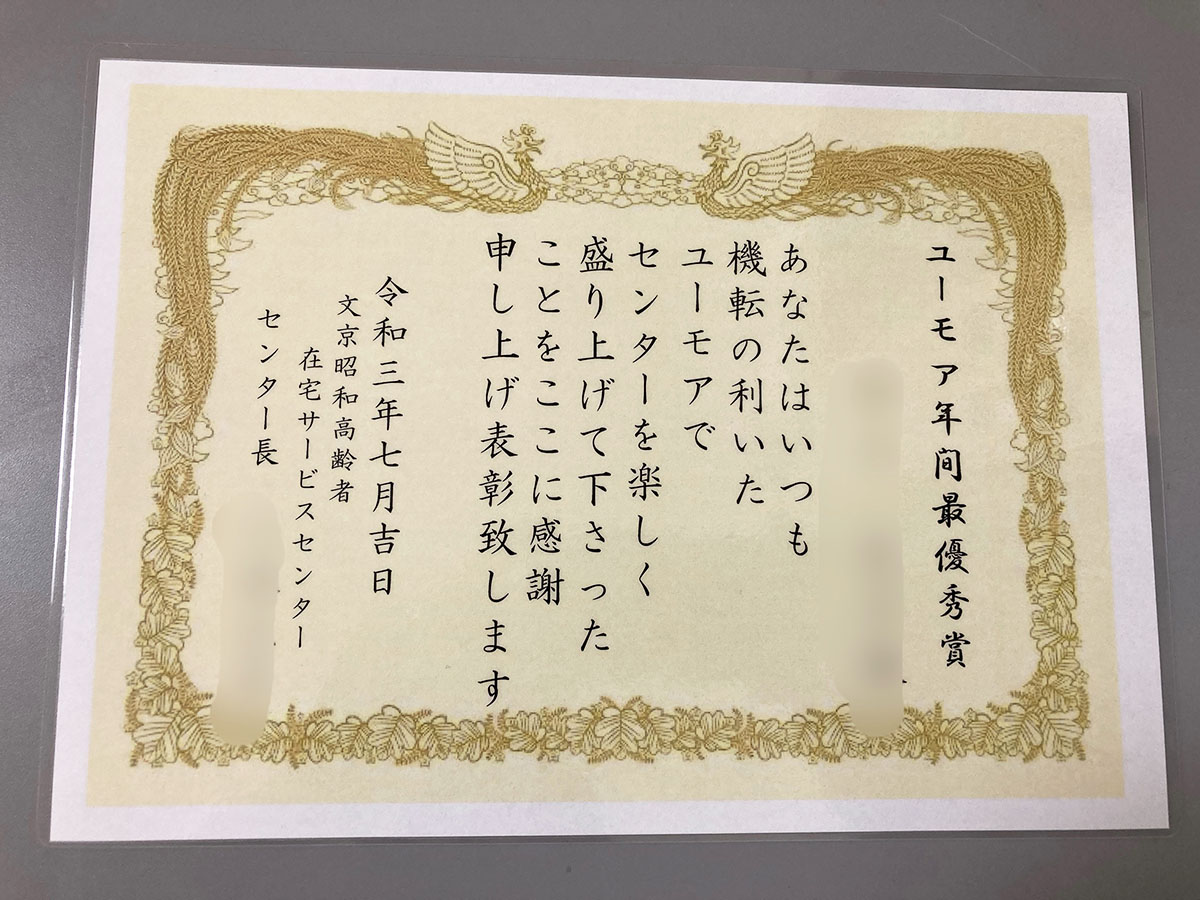 ユーモア年間最優秀賞
あなたはいつも
機転の利いた
ユーモアで
センターを楽しく
盛り上げて下さった
ことをここに感謝
申し上げ表彰致します
令和三年七月吉日
文京昭和高齢者
在宅サービスセンター
センター長